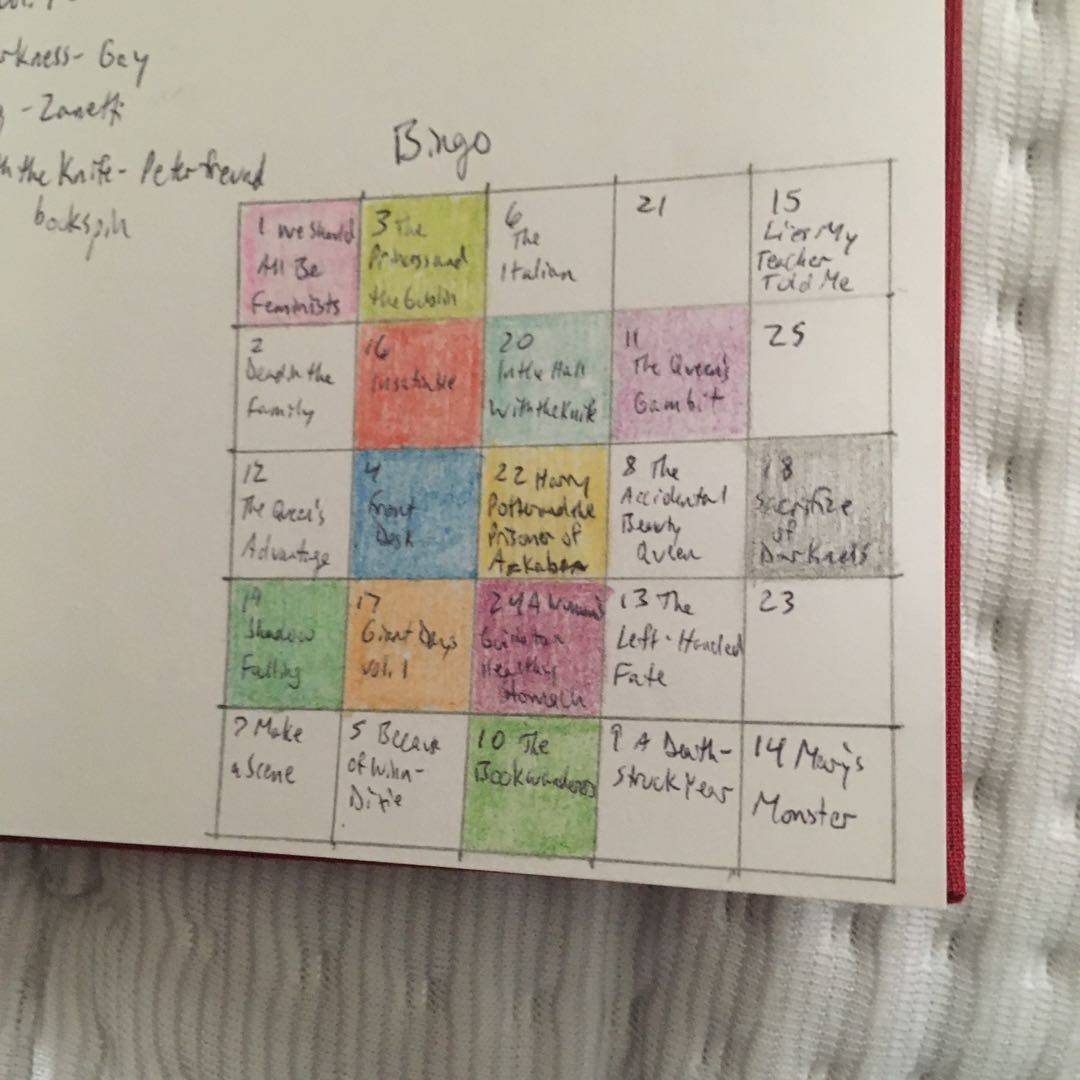 rkness- Gay
- Zanetti
the Knife- Peterfreund
bookspin
Bingo
1 We Should
All Be
Feminists
3 The
Princess and
the Goblin
6
The
Italian
21
15
Lies My
Teacher
Told Me
2
Dead in the
Family
16
Insatiable
20
In the Hall
With the Knife
11
The Queen's
Gambit
25
12
The Queen's
Advantage
4
Front
Desk
22 Harry
Potter and the
Prisoner of
Azkaban
8 The
Accidental
Beauty
Queen
18
Sacrifice
of
Darkness
19
Shadow
Falling
17
Giant Days
vol. 1
24 A Woman's
Guide to a
Healthy
Stomach
13 The
Left-Handed
Fate
23
7 Make
a Scene
5 Because
of Winn-
Dixie
10 The
Bookwanderers
9 A Death-
Struck Year
14 Mary's
Monster